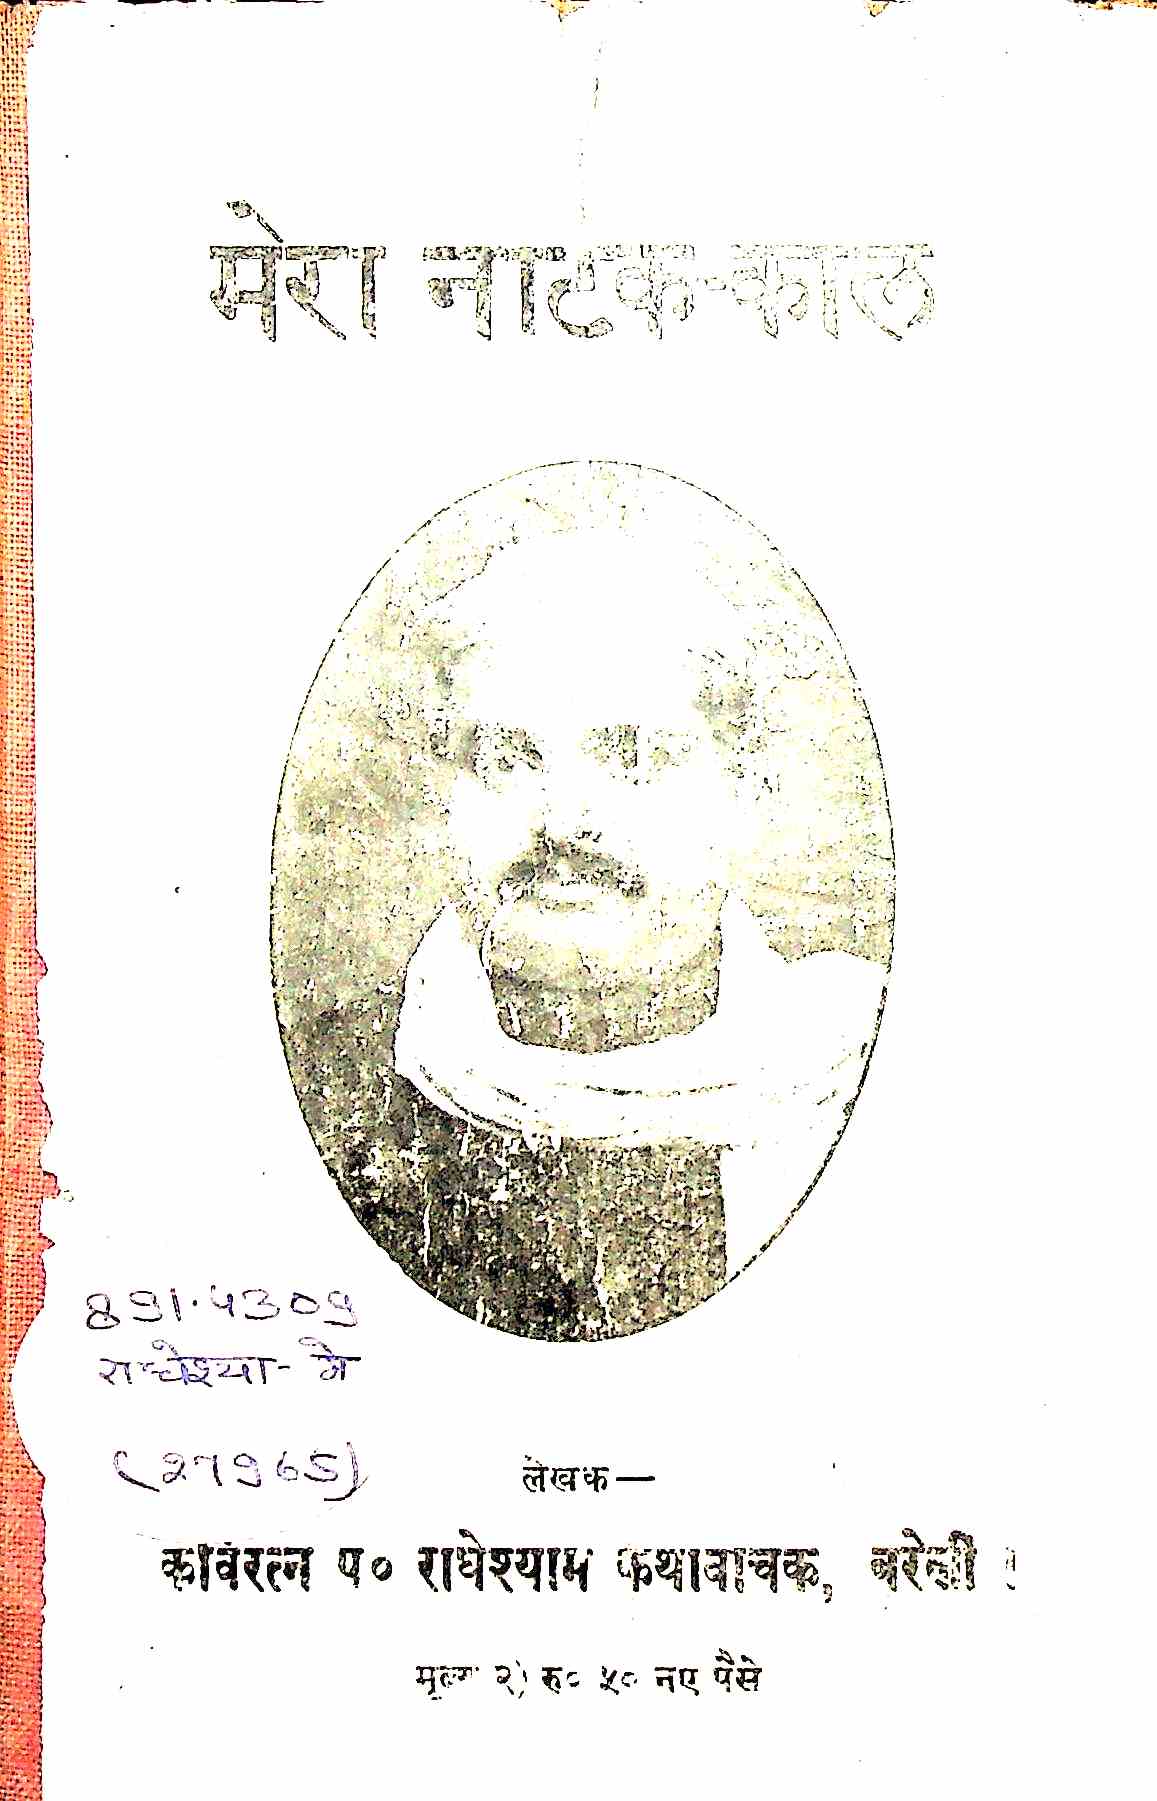 मेरा नाटक-काल
891.4309
राधेश्या- मे
(27965)
लेखक—
कविरत्न पं० राधेश्याम कथावाचक, बरेली ।
मूल्य २) रु० ५० नए पैसे